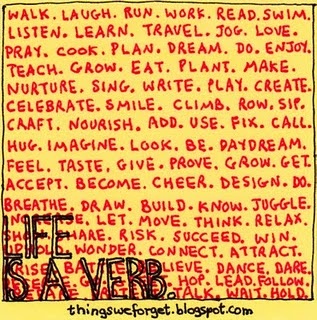 WALK. LAUGH. RUN. WORK. READ. SWIM.
LISTEN. LEARN. TRAVEL. JOG. LOVE.
PRAY. COOK. PLAN. DREAM. DO. ENJOY.
TEACH. GROW. EAT. PLANT. MAKE.
NURTURE. SING. WRITE. PLAY. CREATE.
CELEBRATE. SMILE. CLIMB. ROW. SIP.
CRAFT. NOURISH. ADD. USE. FIX. CALL.
HUG. IMAGINE. LOOK. BE. DAYDREAM.
FEEL. TASTE. GIVE. PROVE. GROW. GET.
ACCEPT. BECOME. CHEER. DESIGN. DO.
BREATHE. DRAW. BUILD. KNOW. JUGGLE.
LET. MOVE. THINK. RELAX.
SHARE. RISK. SUCCEED. WIN.
WONDER. CONNECT. ATTRACT.
DANCE. DARE.
HOP. LEAD. FOLLOW.
WAIT. HOLD.
LIFE
IS A VERB.
thingsweforget.blogspot.com